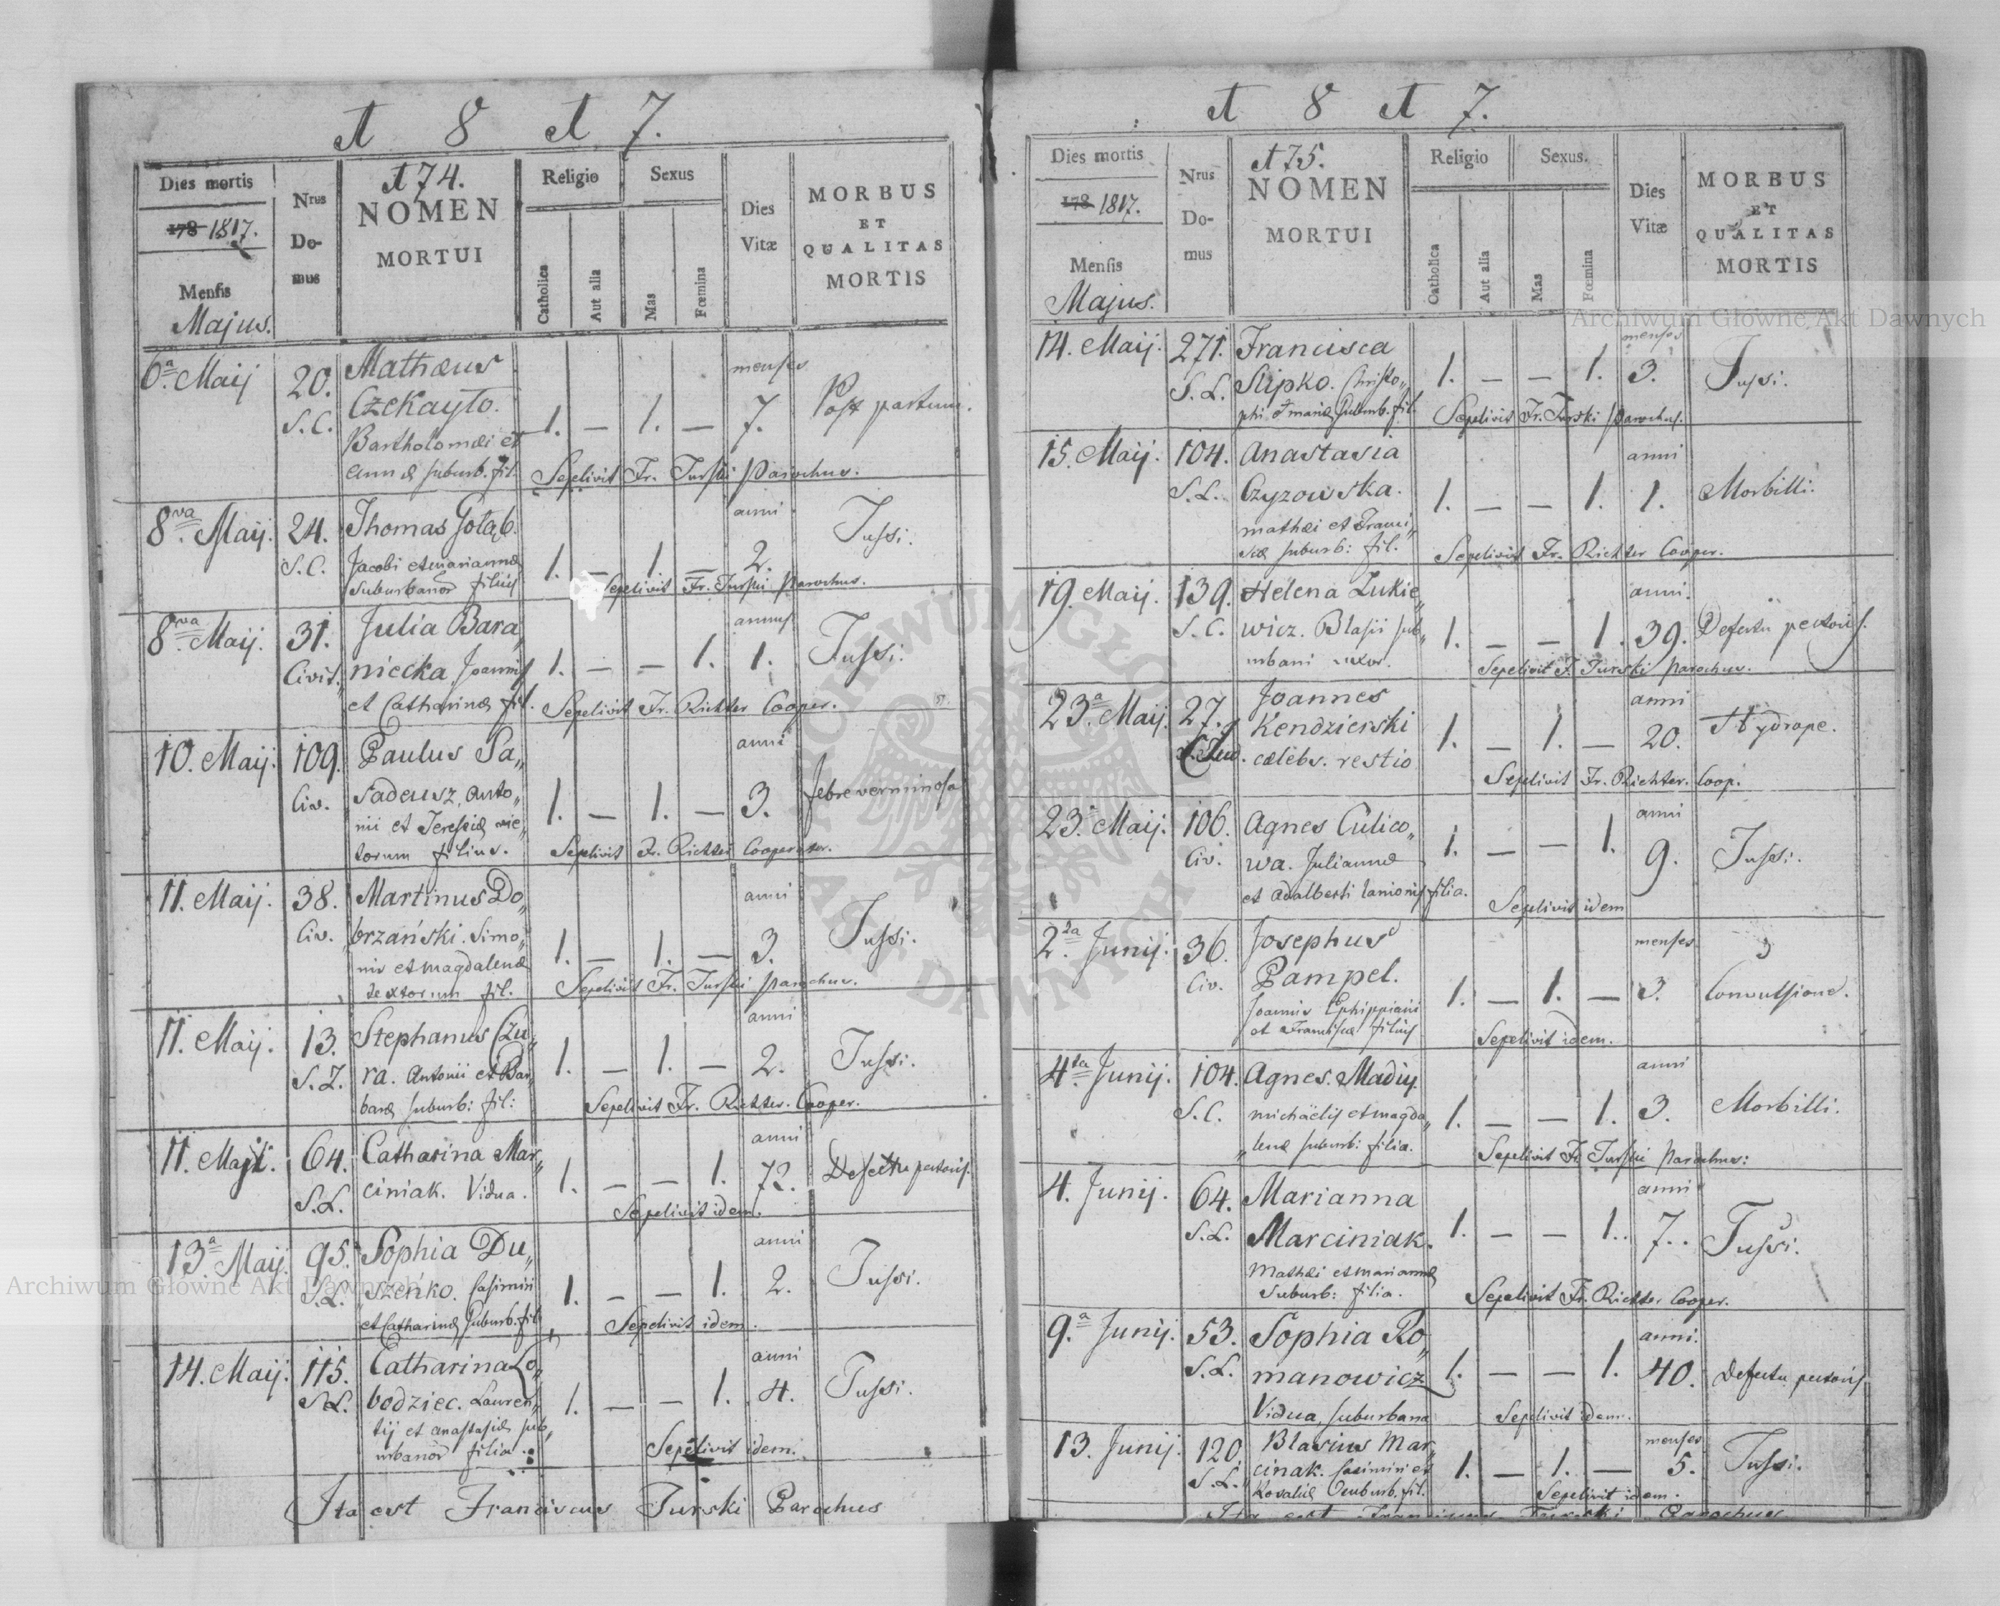 A 8 A 7.
Dies mortis
178 1817.
Mensis
Majus.
Nrus
Do-
mus
A 74.
NOMEN
MORTUI
Religio
Catholica
Aut alia
Sexus
Mas
Fœmina
Dies
Vitæ
MORBUS
ET
QUALITAS
MORTIS
6a Maij 20. Mathæus menses
S.C. Czekayło. 1. — 1. — 7. Post partum.
Bartholomæi et
Annæ suburb. fil. Sepelivit Fr. Turski Parochus.
8va Maij. 24. Thomas Gołąb. anni Tussi.
S.C. Jacobi et Mariannæ 1. — 1. — 2.
Suburbanor filius Sepelivit Fr. Turski Parochus.
8va Maij. 31. Julia Bara„ annus
Civit. niecka Joannis 1. — — 1. 1. Tussi.
et Catharinæ fil. Sepelivit Fr. Richter Cooper.
10. Maij. 109. Paulus Sa„ anni
Civ. Sadeusz, Anto„ 1. — 1. — 3. febre verminosa
nii et Teresiæ
torum filius. Sepelivit Fr. Richter Cooperator.
11. Maij. 38. Martinus Do„ anni
Civ. brzański. Simo„ 1. — 1. — 3. Tussi.
nis et Magdalenæ
textorum fil. Sepelivit Fr. Turski Parochus.
11. Maij. 13. Stephanus Czu„ anni
S.Z. ra. Antonii et Bar„ 1. — 1. — 2. Tussi.
baræ suburb: fil: Sepelivit Fr. Richter. Cooper.
11. Maji. 64. Catharina Mar„ anni
S.L. ciniak. Vidua. 1. — — 1. 72. Defectu pectoris.
Sepelivit idem.
13a Maij. 95. Sophia Du„ anni
S.L. szeńko. Casimiri 1. — — 1. 2. Tussi.
et Catharinæ Suburb. fil. Sepelivit idem.
14. Maij. 115. Catharina Ło„ anni
S.L. bodziec. Lauren„ 1. — — 1. 4. Tussi.
tij et Anastasiæ sub„
urbanor filia. Sepelivit idem.
Ita est Franciscus Turski Parochus
A 8 A 7.
Dies mortis
178 1817.
Mensis
Majus.
Nrus
Do-
mus
A 75.
NOMEN
MORTUI
Religio
Catholica
Aut alia
Sexus.
Mas
Fœmina
Dies
Vitæ
MORBUS
ET
QUALITAS
MORTIS
14. Maij. 271. Francisca menses
S.L. Slipko. Christo„ 1. — — 1. 3. Tussi.
phi Suburb. fil. Sepelivit Fr. Turski Parochus.
15. Maij. 104. Anastasia anni
S.L. Czyzowska. 1. — — 1. 1. Morbilli.
Mathæi et Franci„
scæ suburb: fil. Sepelivit Fr. Richter Cooper.
19. Maij. 139. Helena Lukie„ anni.
S.C. wicz. Blasii sub„ 1. — — 1. 39. Defectu pectoris.
urbani uxor. Sepelivit F. Turski Parochus.
23a Maij. 27. Joannes anni
Kendzierski 1. — 1. — 20. Hydrope.
cælebs. restio Sepelivit Fr. Richter. Coop.
23. Maij. 106. Agnes Culico„ anni
Civ. wa. Juliannæ 1. — — 1. 9. Tussi.
et Adalberti lanionis filia. Sepelivit idem
2da Junij. 36. Josephus menses
Civ. Pampel. 1. — 1. — 3. Convulsione.
Joannis Ephippiarii
et Franciscæ filius Sepelivit idem.
4ta Junij. 104. Agnes. Madiy anni
S.C. Michäelis et Magda„ 1. — — 1. 3. Morbilli.
„lenæ suburb: filia. Sepelivit Fr Turski Parochus:
4. Junij. 64. Marianna anni
S.L. Marciniak. 1. — — 1. 7. Tussi.
Mathæi et Mariannæ
Suburb: filia. Sepelivit Fr. Richter Cooper.
9.a Junij. 53. Sophia Ro„ anni.
S.L. manowicz 1. — — 1. 40. Defectu pectoris
Vidua, suburbana Sepelivit idem.
13. Junij. 120. Blasius Mar„ menses
S.L. cinak. Casimiri et 1. — 1. — 5. Tussi.
Rosaliæ Suburb. fil. Sepelivit idem.
Ita est Franciscus Turski Parochus
Archiwum Główne Akt Dawnych
Archiwum Główne Akt Dawnych
ARCHIWUM GŁÓWNE AKT DAWNYCH